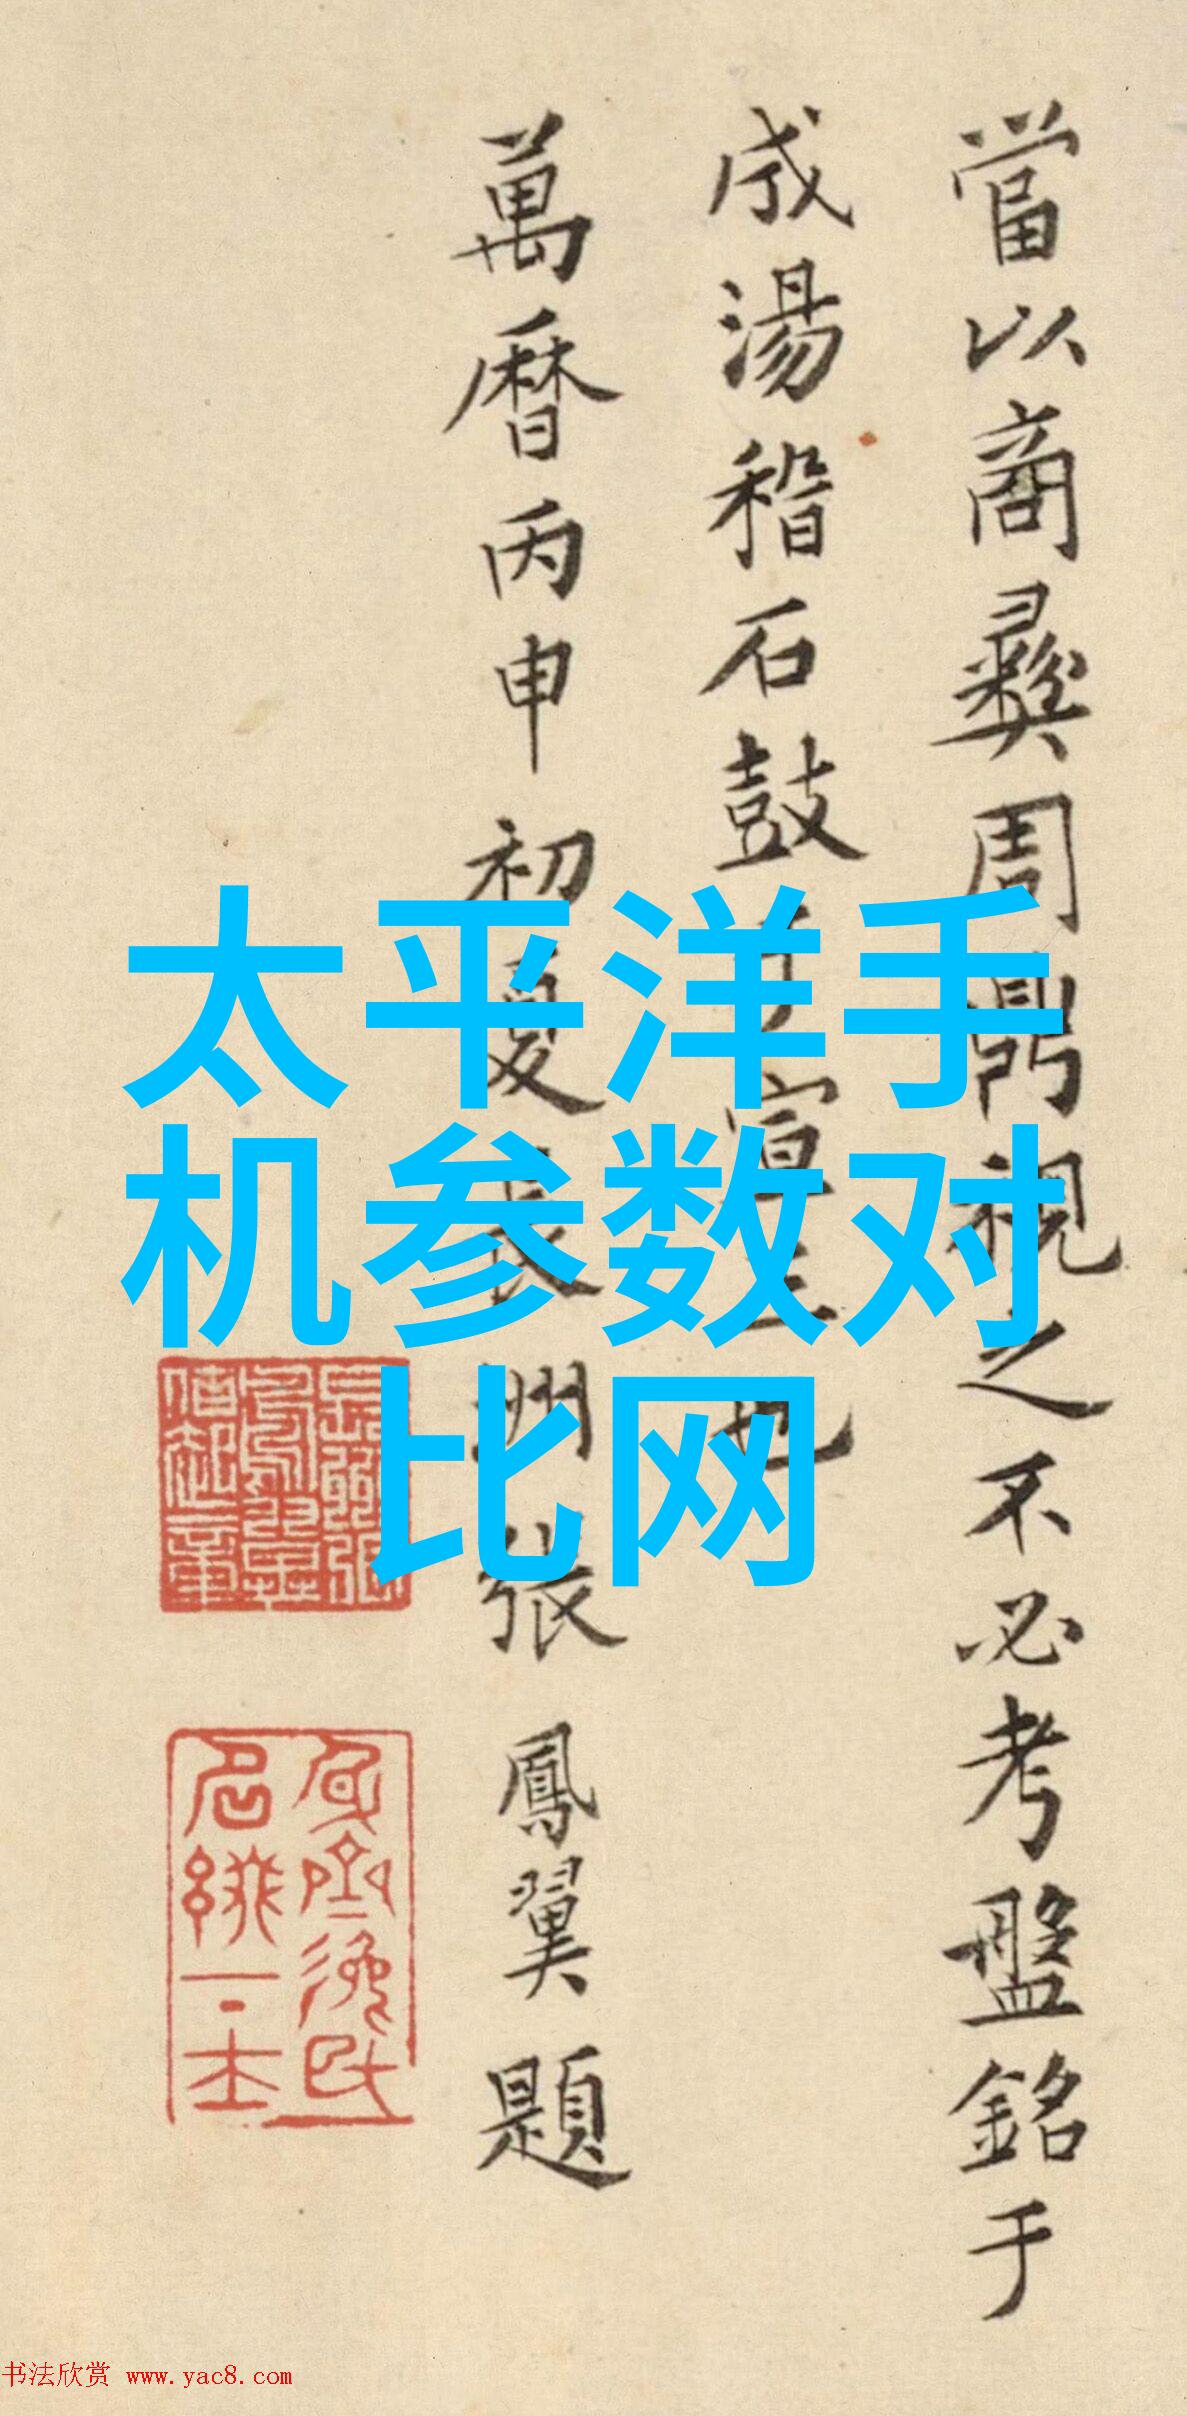 當以商彝周鼎視之不必考盤銘于
成湯稽石鼓于宣王也
萬曆丙申初夏長洲張鳳翼題
太平洋手
机参数对
比网
书法欣赏 www.yac8.com